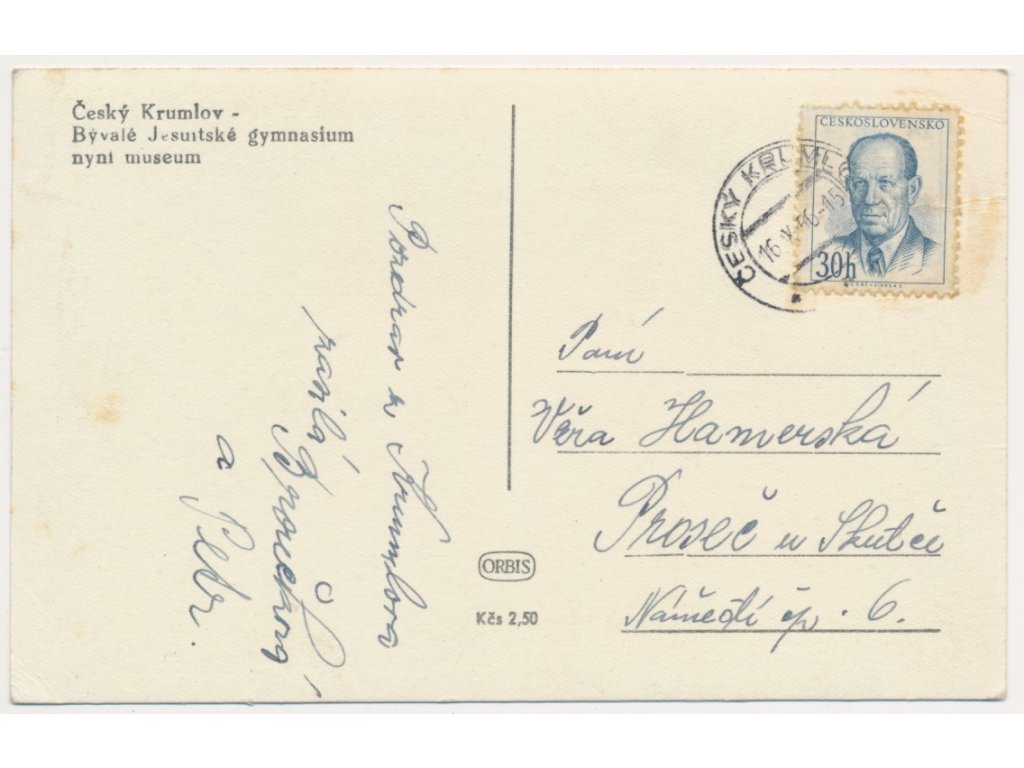 Český Krumlov -
Bývalé Jesuitské gymnasium
nyní museum
Pozdrav z Krumlova
Broučková
a Petr.
ORBIS
Kčs 2,50
ČESKOSLOVENSKO
30h
ČESKÝ KRUMLO
16.X.56-15
Paní
Věra Hamerská
Proseč u Skutče
Náměstí čp. 6.